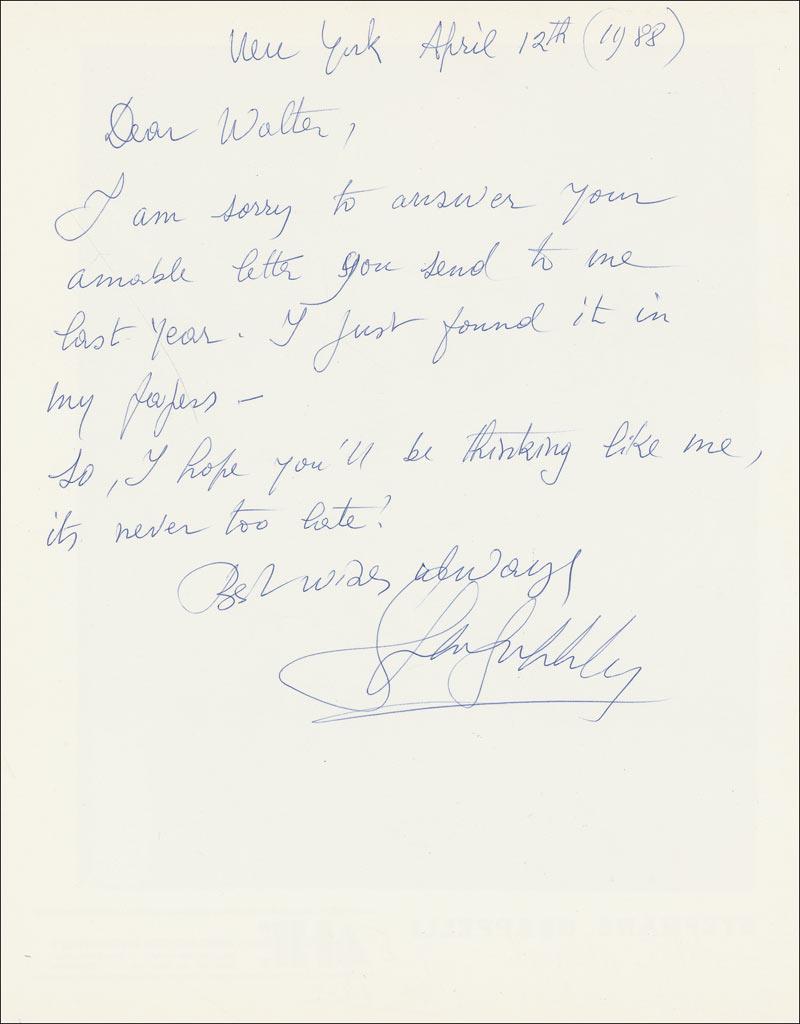 New York April 12th (1988)
Dear Walter,
I am sorry to answer your
amable letter you send to me
last year. I just found it in
my papers —
so, I hope you'll be thinking like me,
its never too late!
Best wises always
STEPHANE GRAPPELLI